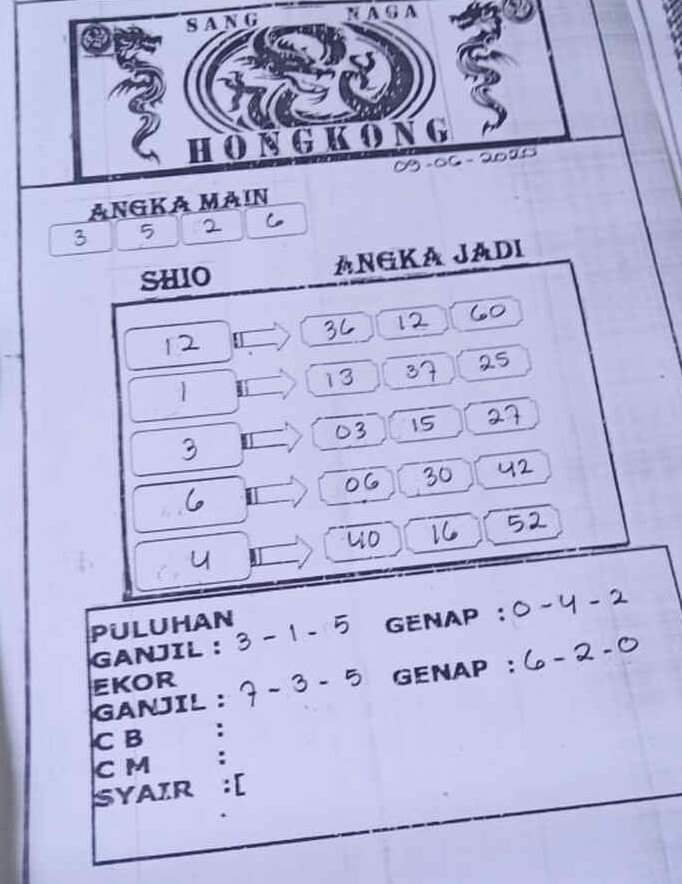 SANG NAGA
HONGKONG
09-06-2020
ANGKA MAIN
3 5 2 6
SHIO ANGKA JADI
12 36 12 60
1 13 37 25
3 03 15 27
6 06 30 42
4 40 16 52
PULUHAN
GANJIL : 3 - 1 - 5 GENAP : 0 - 4 - 2
EKOR
GANJIL : 7 - 3 - 5 GENAP : 6 - 2 - 0
C B :
C M :
SYAIR :[